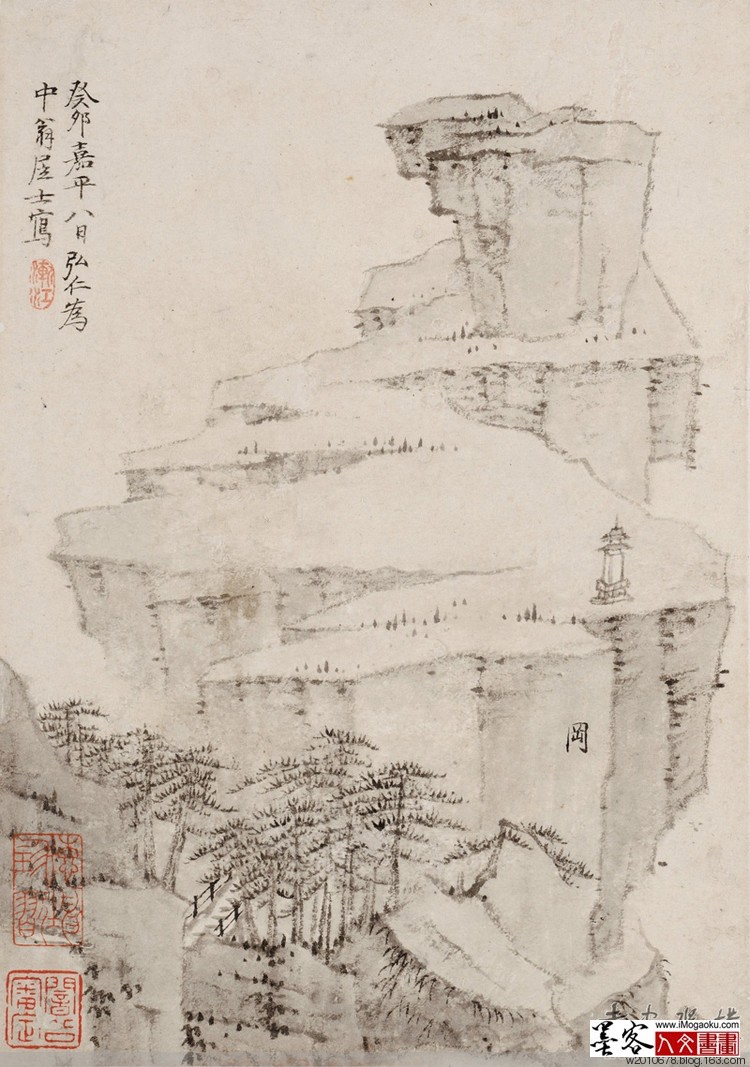 癸卯嘉平八日弘仁為
中翁居士寫
漸江
岡
墨客
www.iMogaoku.com
人文書畫
w2010678.blog.163.com